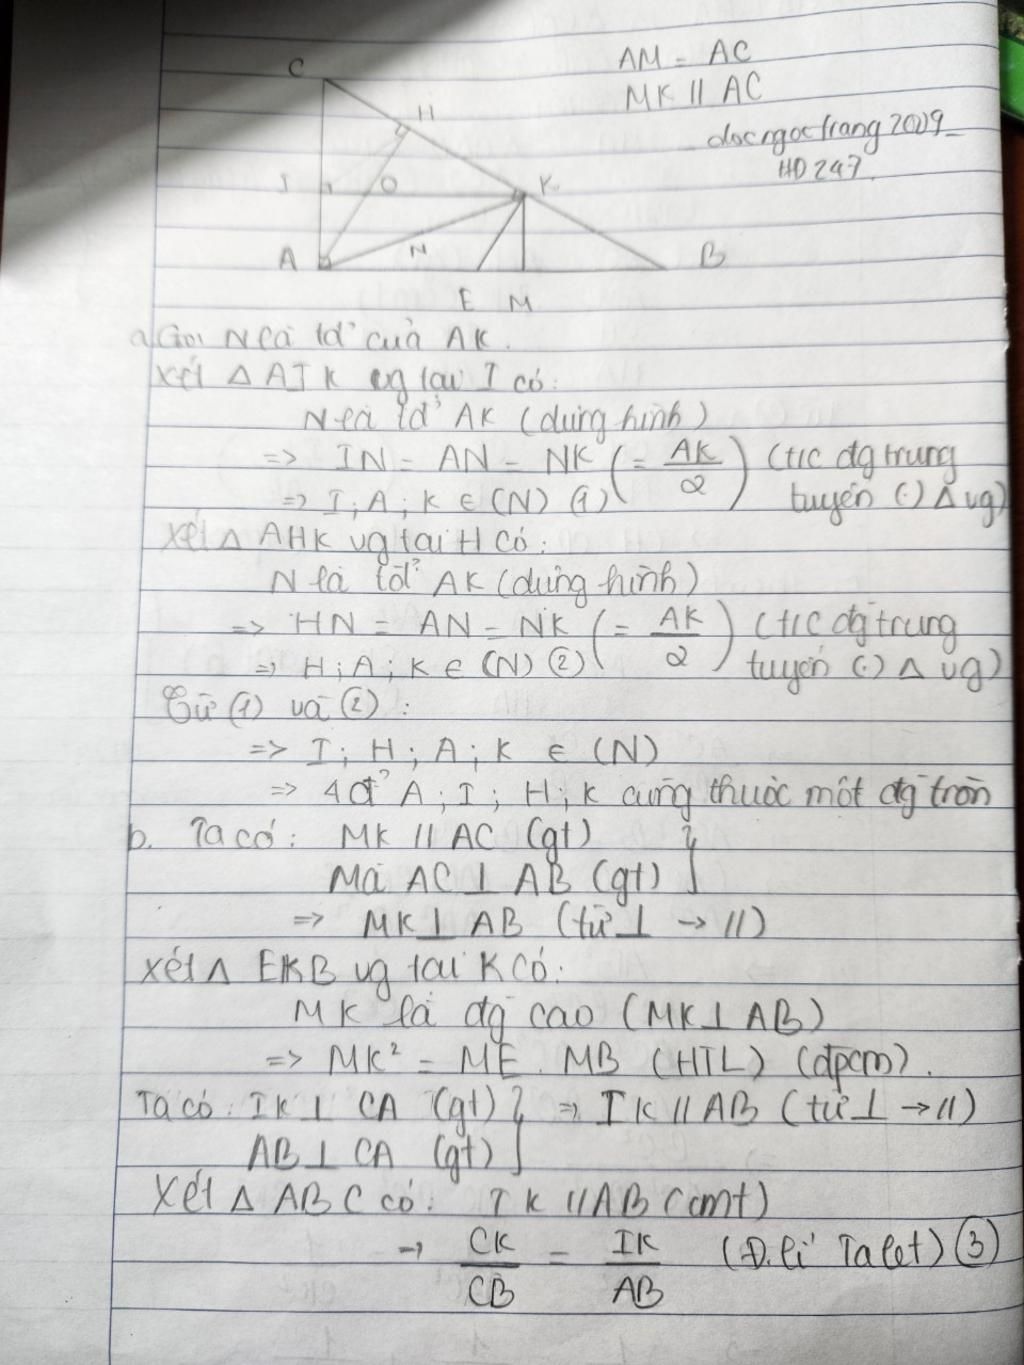 AM = AC
MK // AC
docngoctrang2009_
HD247
C
H
I
O
K
A
N
B
E M
a. Gọi N là tđ² của AK.
Xét △ AIK vg tại I có:
N là tđ² AK (dựng hình)
=> IN = AN = NK (= AK/2) (t/c đg trung tuyến (.) △ vg)
=> I; A; K ∈ (N) (1)
Xét △ AHK vg tại H có:
N là tđ² AK (dựng hình)
=> HN = AN = NK (= AK/2) (t/c đg trung tuyến (.) △ vg)
=> H; A; K ∈ (N) (2)
Từ (1) và (2) :
=> I; H; A; K ∈ (N)
=> 4đ² A; I; H; K cùng thuộc một đg tròn
b. Ta có: MK // AC (gt) }
Mà AC ⊥ AB (gt)
=> MK ⊥ AB (từ ⊥ → //)
Xét △ EKB vg tại K có:
MK là đg cao (MK ⊥ AB)
=> MK² = ME . MB (HTL) (đpcm).
Ta có: IK ⊥ CA (gt) } => IK // AB (từ ⊥ → //)
AB ⊥ CA (gt)
Xét △ ABC có: IK // AB (cmt)
→ CK/CB = IK/AB (Đ.lí Talet) (3)